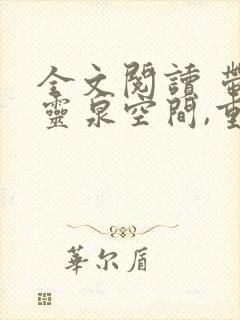 全文閱讀 帶
靈泉空間,重
華尔盾